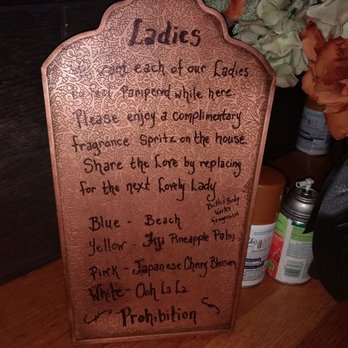 Ladies
We want each of our Ladies
to feel Pampered while here.
Please enjoy a complimentary
fragrance Spritz on the house.
Share the Love by replacing
for the next Lovely Lady
Bath & Body
Works
fragrances
Blue - Beach
Yellow - Fiji Pineapple Palm
Pink - Japanese Cherry Blossom
White - Ooh La La.
Prohibition